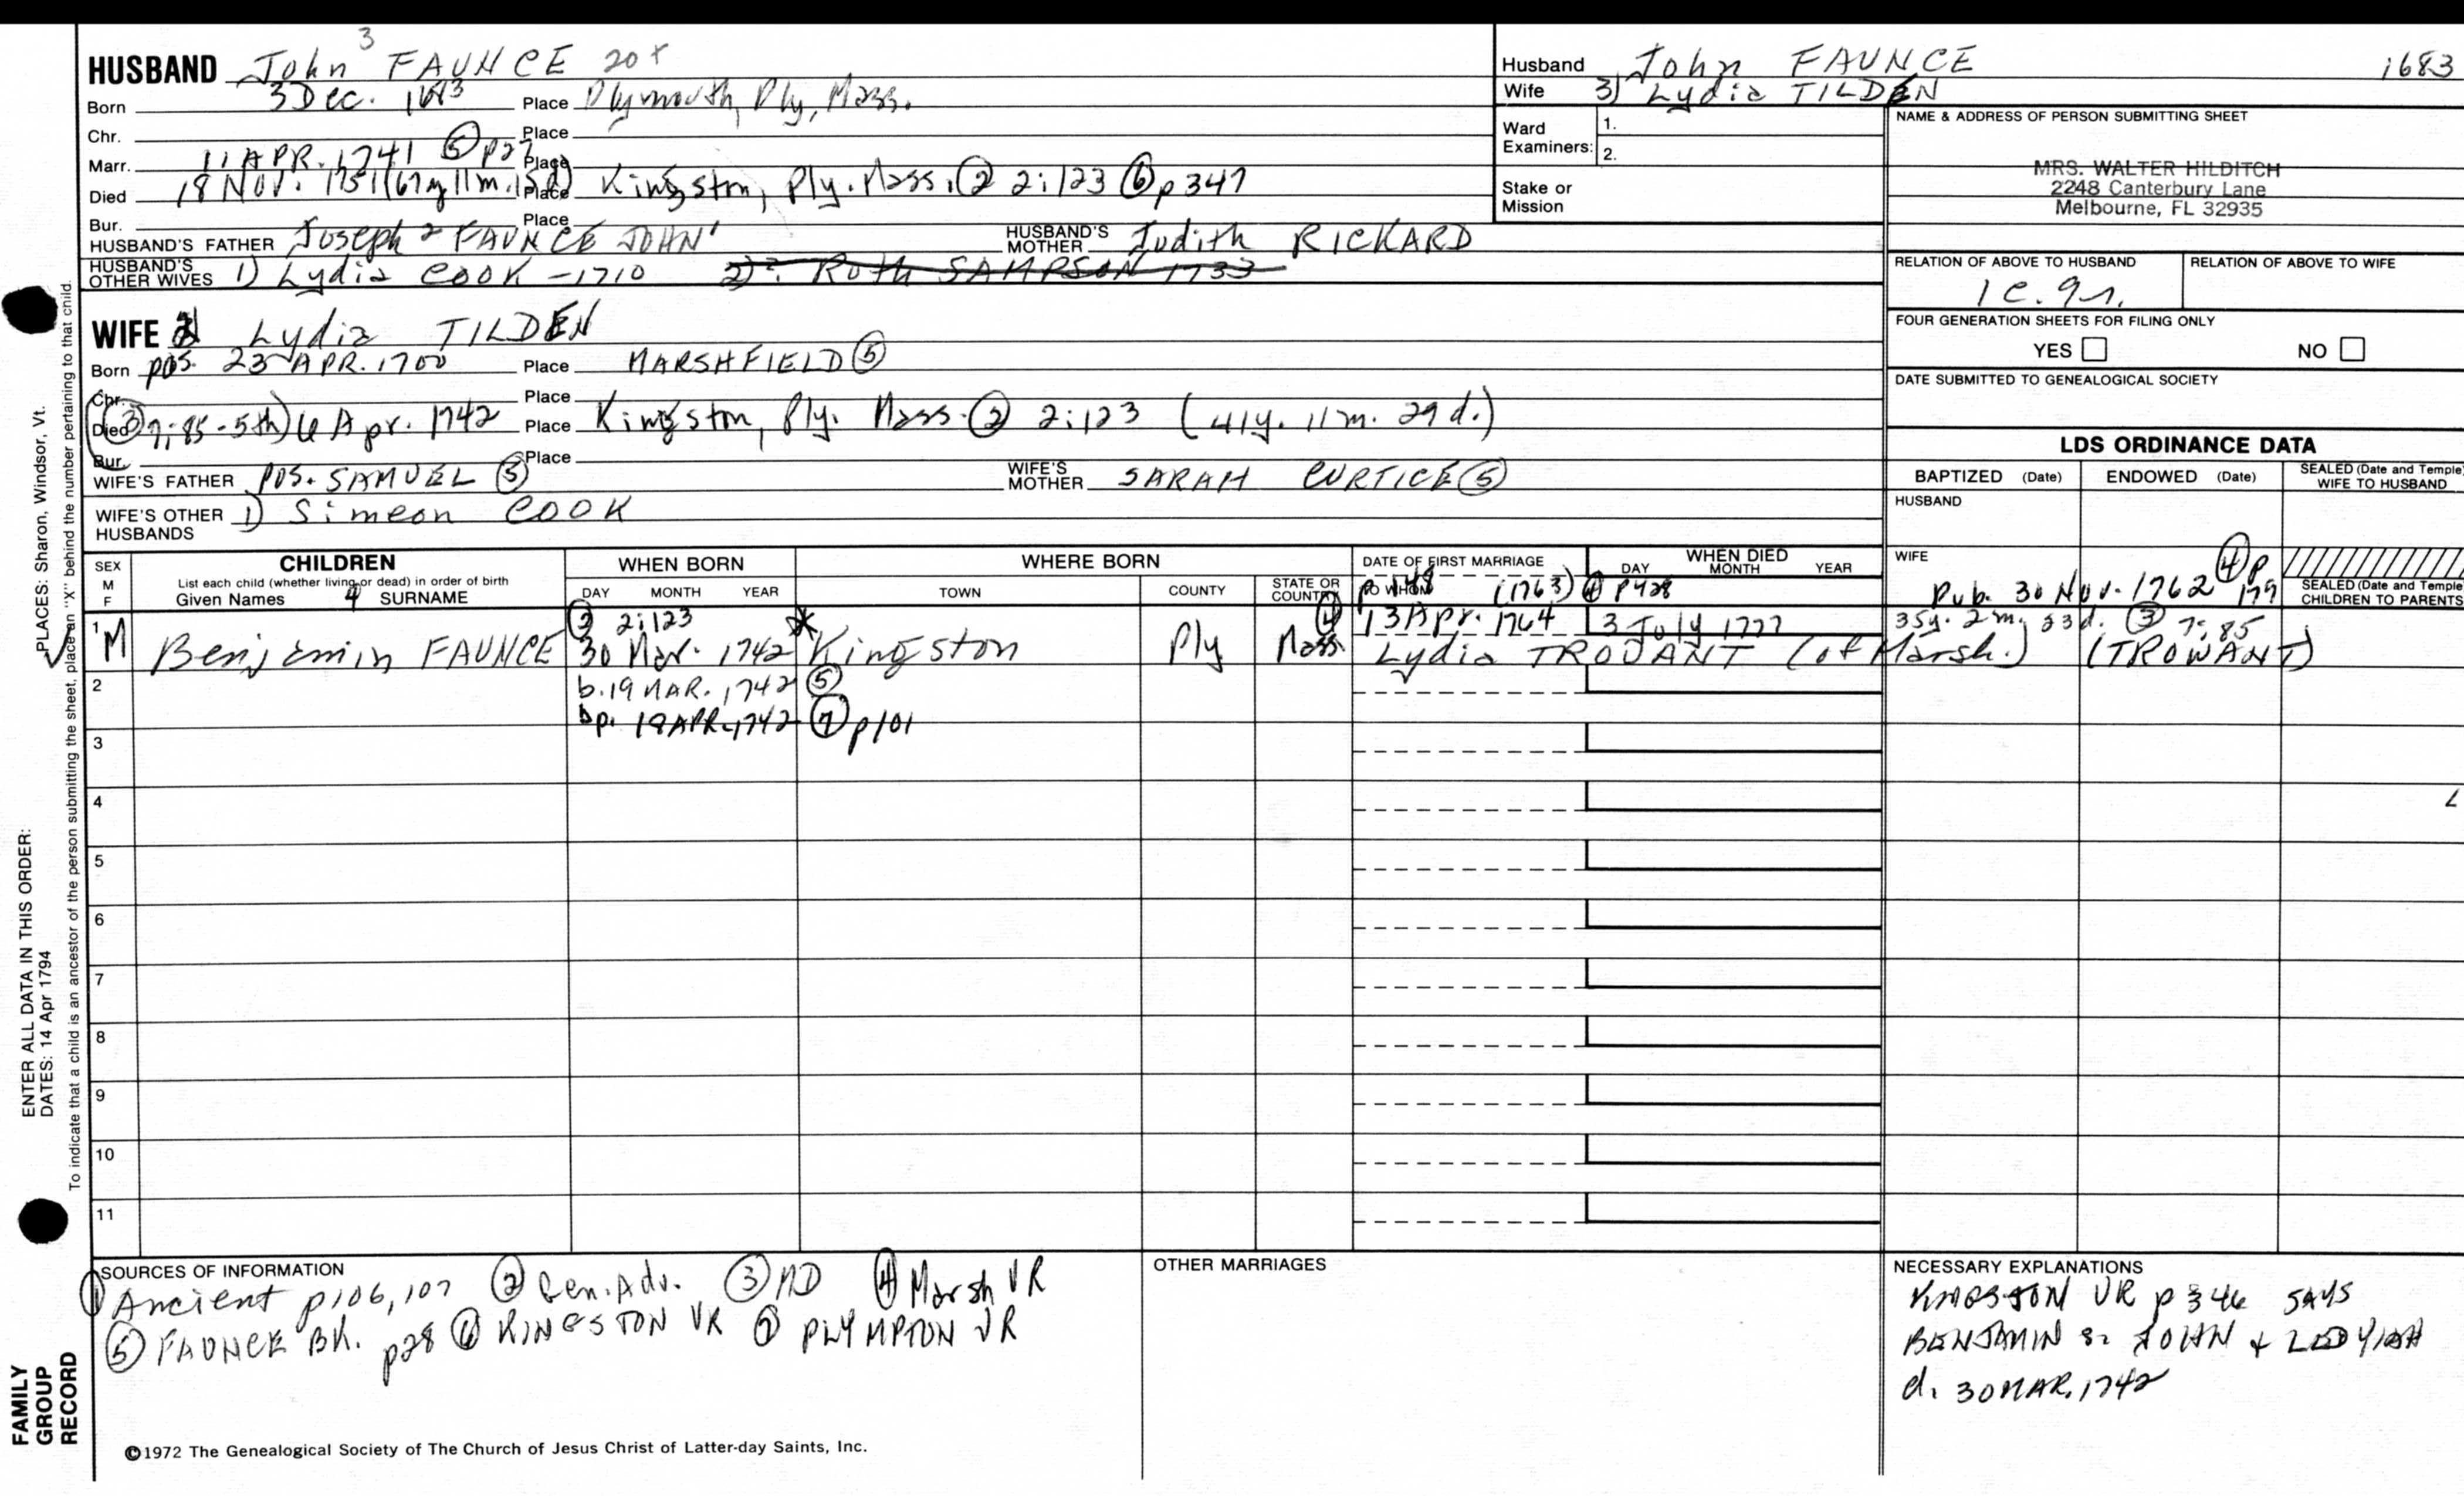 HUSBAND John 3 FAUNCE 20x
Born 3 Dec. 1683 Place Plymouth, Ply, Mass.
Chr. Place
Marr. 11 APR. 1741 (5) p27 Place
Died 18 NOV. 1751 (67y 11m. 15d) Place Kingston, Ply. Mass. (2) 2:123 (6) p347
Bur. Place
HUSBAND'S FATHER Joseph 2 FAUNCE JOHN' HUSBAND'S MOTHER Judith RICKARD
HUSBAND'S OTHER WIVES 1) Lydia COOK -1710 2)? Ruth SAMPSON 1733
WIFE Lydia TILDEN
Born POS. 23 APR. 1700 Place MARSHFIELD (5)
Chr. Place
Died (3) 7:85-5th) 6 Apr. 1742 Place Kingston, Ply. Mass. (2) 2:123 (41y. 11m. 29d.)
Bur. Place
WIFE'S FATHER POS. SAMUEL (5) WIFE'S MOTHER SARAH CURTICE (5)
WIFE'S OTHER HUSBANDS 1) Simeon COOK
Husband John FAUNCE 1683
Wife 3) Lydia TILDEN
Ward Examiners: 1.
2.
Stake or Mission
NAME & ADDRESS OF PERSON SUBMITTING SHEET
MRS. WALTER HILDITCH
2248 Canterbury Lane
Melbourne, FL 32935
RELATION OF ABOVE TO HUSBAND RELATION OF ABOVE TO WIFE
1c.9r.
FOUR GENERATION SHEETS FOR FILING ONLY
YES NO
DATE SUBMITTED TO GENEALOGICAL SOCIETY
LDS ORDINANCE DATA
BAPTIZED (Date) ENDOWED (Date) SEALED (Date and Temple) WIFE TO HUSBAND
HUSBAND
WIFE
Pub. 30 Nov. 1762 (4) p 179
SEALED (Date and Temple) CHILDREN TO PARENTS
SEX M F
CHILDREN
List each child (whether living or dead) in order of birth
Given Names SURNAME
WHEN BORN
DAY MONTH YEAR
WHERE BORN
TOWN COUNTY STATE OR COUNTRY
DATE OF FIRST MARRIAGE
TO WHOM
p148 (1763)
WHEN DIED
DAY MONTH YEAR
(4) p428
1 M Benjamin FAUNCE (2) 2:123 30 Mar. 1742 Kingston Ply Mass. (4) 13 Apr. 1764 3 July 1777 35y. 2m. 23d. (3) 7:85
Lydia TROUANT (of Marsh.) (TROWANT)
2 b. 19 MAR. 1742 (5)
bp. 18 APR. 1742 (7) p101
3
4
5
6
7
8
9
10
11
SOURCES OF INFORMATION
(1) Ancient p106, 107 (2) Gen. Adv. (3) MD (4) Marsh VR
(5) FAUNCE BK. p28 (6) KINGSTON VR (7) PLYMPTON VR
OTHER MARRIAGES
NECESSARY EXPLANATIONS
KINGSTON VR p 346 SAYS
BENJAMIN s: JOHN + LEDYIAH
d. 30 MAR. 1742
©1972 The Genealogical Society of The Church of Jesus Christ of Latter-day Saints, Inc.
FAMILY GROUP RECORD
ENTER ALL DATA IN THIS ORDER:
DATES: 14 Apr 1794
PLACES: Sharon, Windsor, Vt.
To indicate that a child is an ancestor of the person submitting the sheet, place an "X" behind the number pertaining to that child.